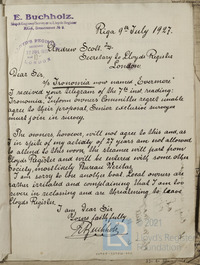 E. Buchholz.
Riga 9th July 1927.
Andrew Scott
Secretary to Lloyds Register
London
Dear Sir,
s/s "Tronomia" now named "Everamore"
I received your telegram of the 7th inst reading:
Tronomia, inform owners Committee regret unable
agree to their proposal Senior exclusive surveyor
must join in survey
The owners however, will not agree to this and, as
in spite of my activity of 27 years am not allowed
to attend to this work the steamer will part from
Lloyds Register and will be entered with some other
Society, most likely Bureau Veritas.
I am sorry to the another boat. Local owners are
rather irritated and complaining that I am
over in reclassing and are threatening to leave
Lloyds Register.
I am Dear Sir
Yours faithfully
E. Buchholz
© 2021
Lloyd's Register
Foundation